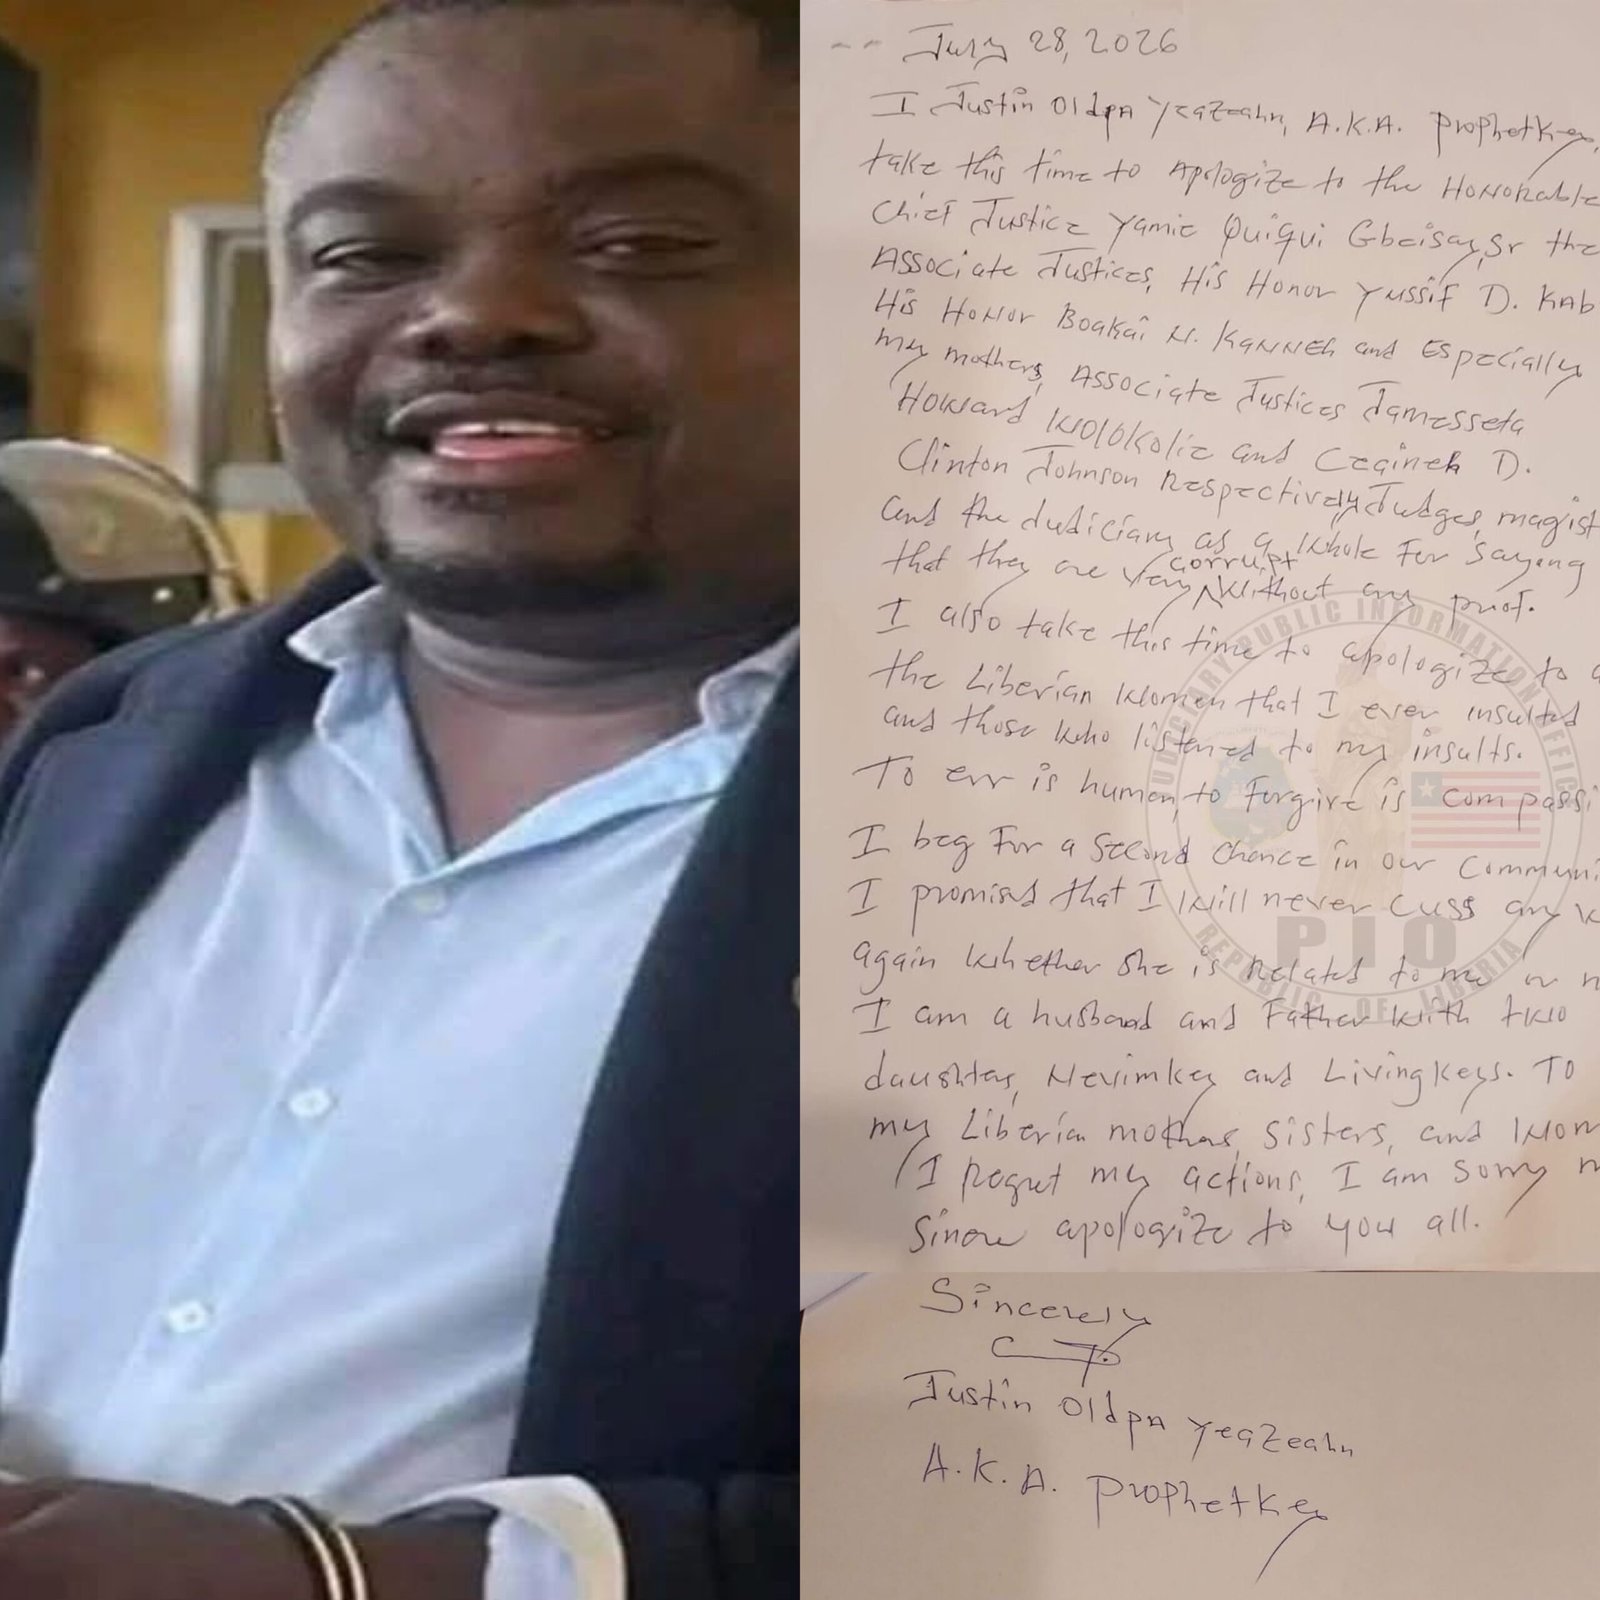 July 28, 2026
I Justin Oldpa Yeazeahn, A.K.A. Prophetkey,
take this time to Apologize to the Honorable
Chief Justice Yamie Quiqui Gbeisay, Sr the
Associate Justices, His Honor Yussif D. Kab
His Honor Boakai N. Kanneh and Especially
my mothers, Associate Justices Jamesseta
Howard Wolokolie and Ceaineh D.
Clinton Johnson Respectively, Judges, magist
and the Judiciary as a whole For saying
that they are very corrupt without any proof.
I also take this time to apologize to a
the Liberian women that I ever insulted
and those who listened to my insults.
To err is human, to Forgive is compassi
I beg For a second chance in our communi
I promised that I will never cuss any w
again whether she is related to me or n
I am a husband and Father with two
daughters, Nevimkey and Livingkeys. To
my Liberia mothers, sisters, and wom
I regret my actions, I am sorry n
Sincere apologize to you all.
Sincerely
Justin Oldpa Yeazeahn
A.K.A. Prophetkey
JUDICIARY PUBLIC INFORMATION OFFICE
PIO
REPUBLIC OF LIBERIA